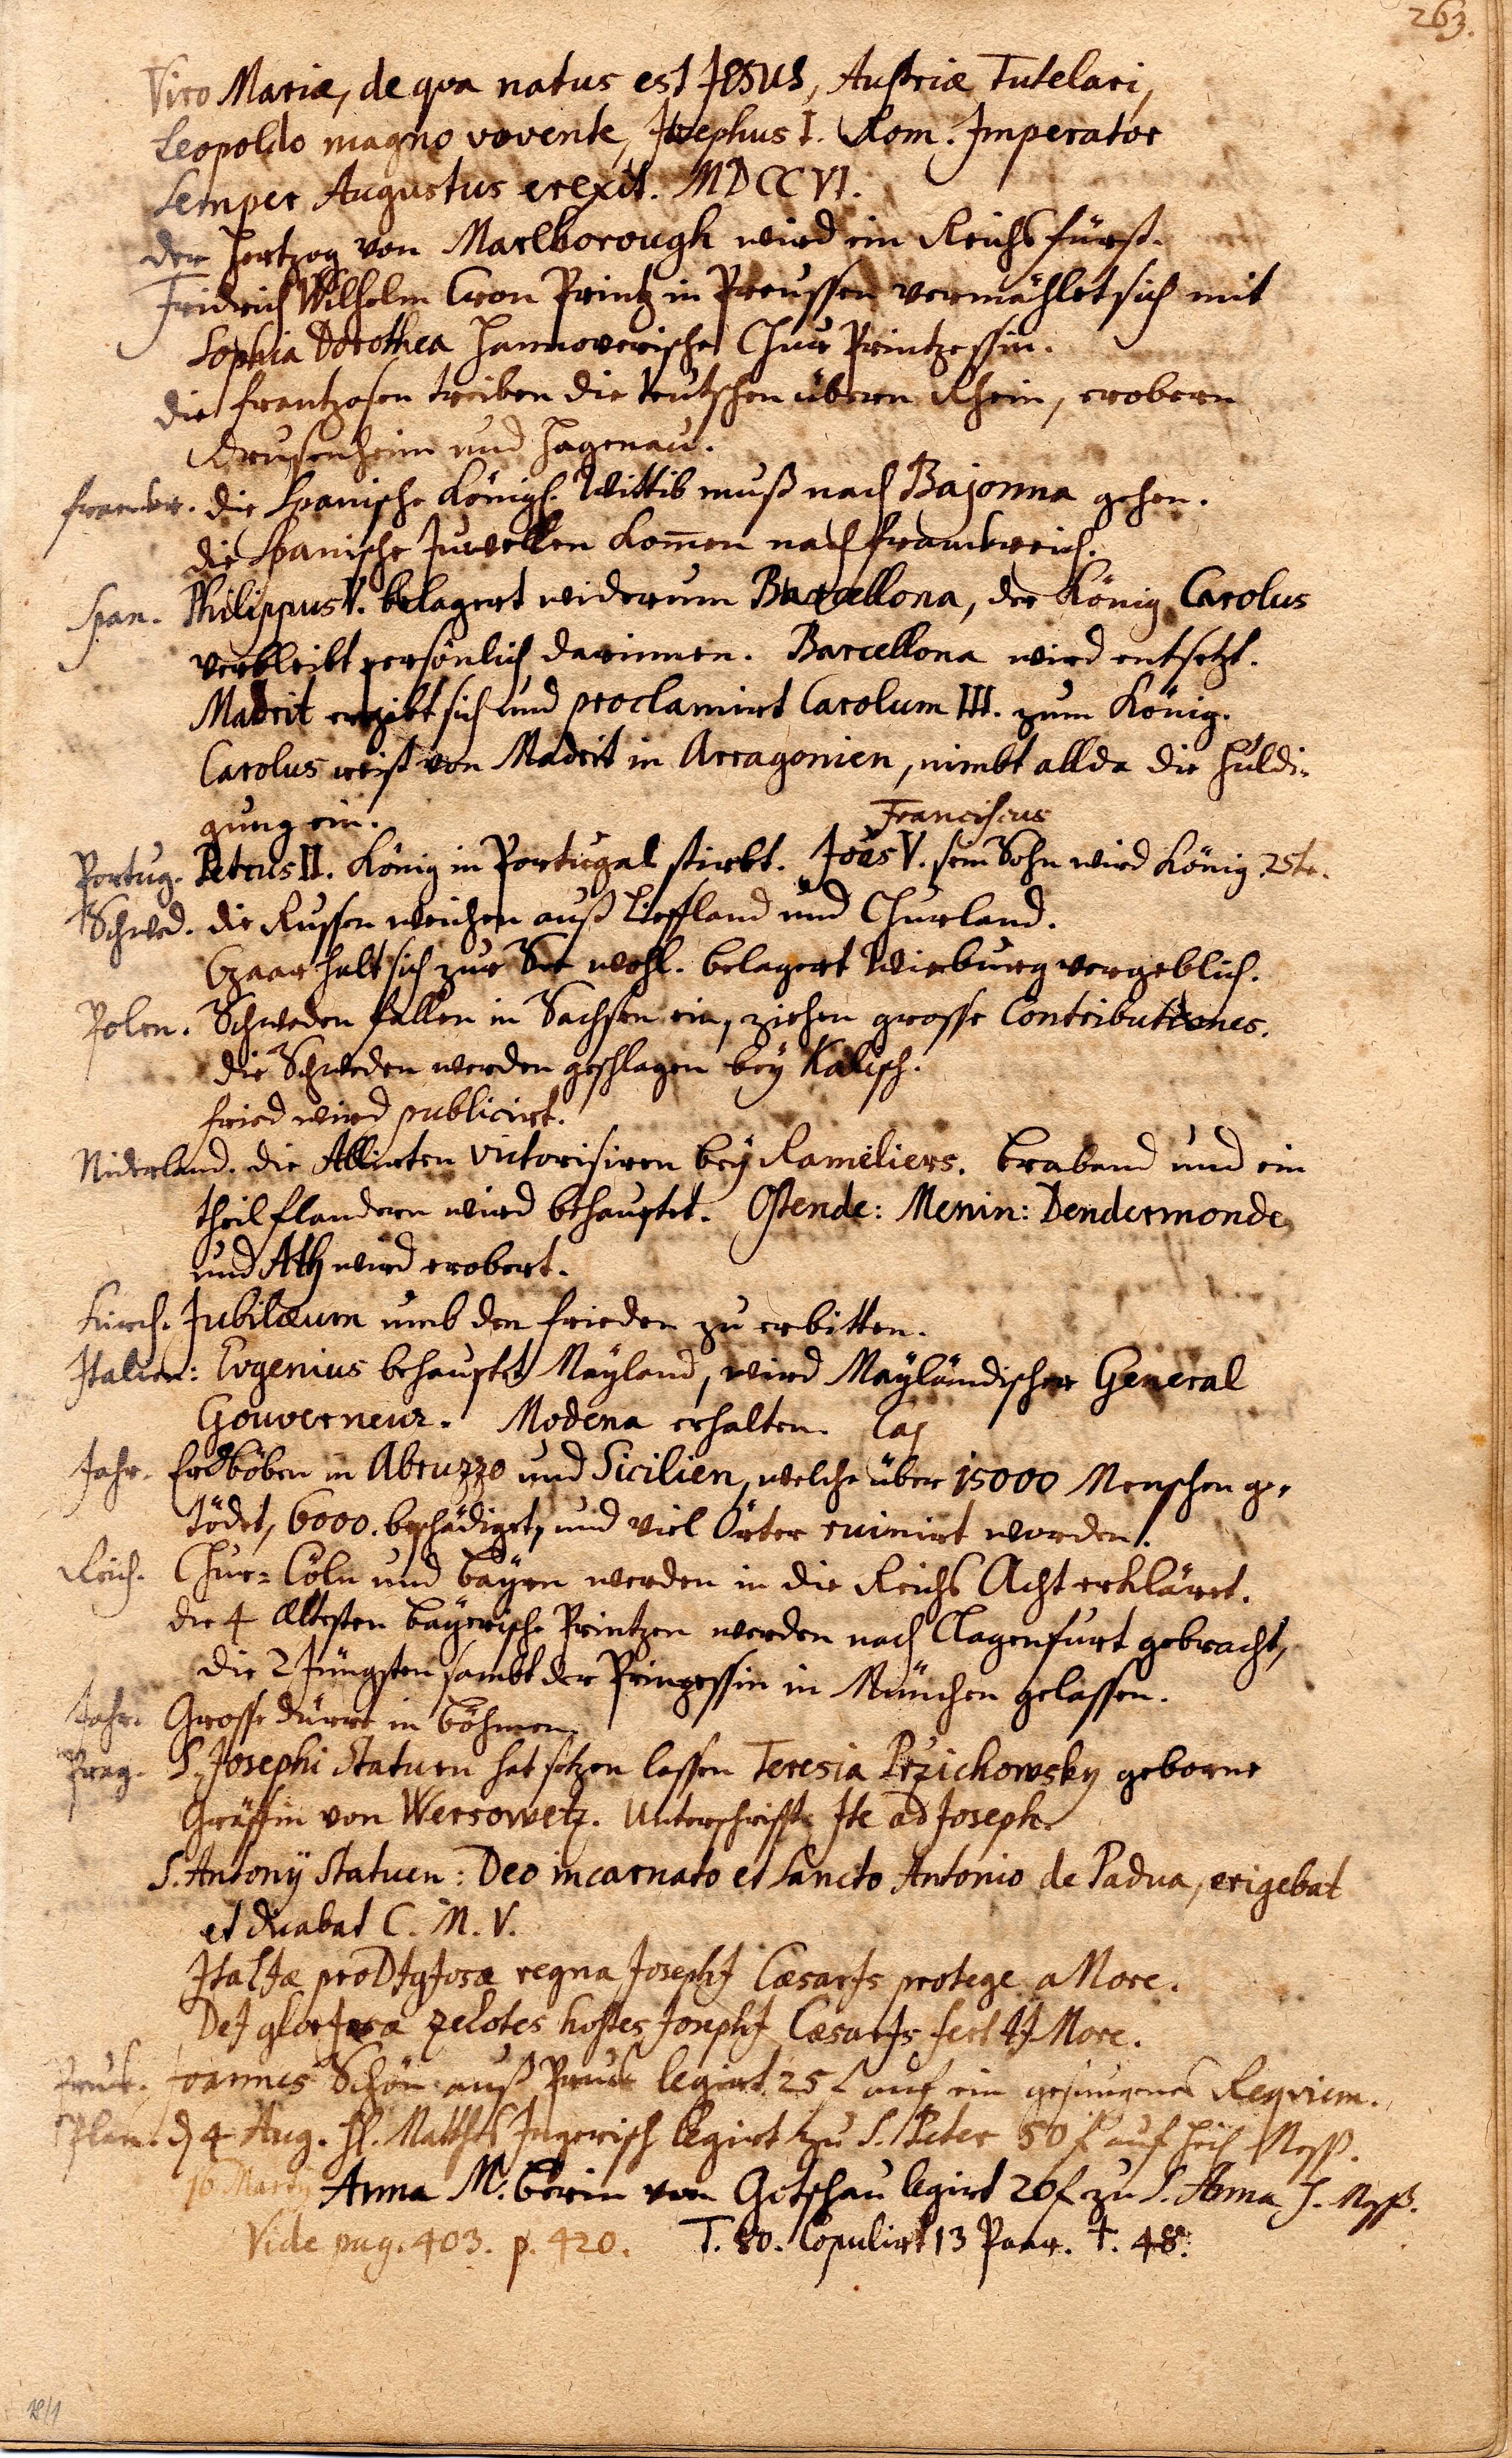 263.
Viro Mariæ, de qva natus est JESUS, Austriæ Tutelari,
Leopoldo magno vovente, Josephus I. Rom. Imperator
Semper Augustus erexit. MDCCVI.
der Hertzog von Marlborough wird ein Reichsfürst.
Fridrich Wilhelm Cron Printz in Preussen vermählet sich mit
Sophia Dorothea Hannoverische Chur Printzessin.
die Frantzosen treiben die teutschen übern Rhein, erobern
Drusenheim und Hagenau.
Franckr. die Spanische Königl. Wittib muß nach Bajonna gehen.
die Spanische Juwellen kom̄en nach Franckreich.
Span. Philippus V. belagert widerum Barcellona, der König Carolus
verbleibt persönlich darinnen. Barcellona wird entsetzt.
Madrit ergibt sich und proclamirt Carolum III. zum König.
Carolus reist von Madrit in Arragonien, nimbt allda die Huldi-
gung ein.
Franciscus
Portug. Petrus II. König in Portugal stirbt. Joäs V. sein Sohn wird König 25te.
Schwed. die Russen weichen auß Lieffland und Churland.
Czaar halt sich zur See wohl. belagert Wieburg vergeblich.
Polen. Schweden fallen in Sachsen ein, ziehen grosse Contributiones.
die Schweden werden geschlagen bey Kalisch.
Fried wird publicirt.
Niderland. die Allirten victorisiren bey Rameliers. Braband und ein
theil Flandern wird behauptet. Ostende: Menin: Dendermonde
und Ath wird erobert.
Kirch. Jubilæum umb den Frieden zu erbitten.
Italien: Evgenius behauptet Mayland, wird Mayländischer General
Gouverneur. Modena erhalten.
Jahr. Erdböben in Abruzzo und Sicilien, welche über 15000 Menschen ge-
tödet, 6000. beschädiget, und viel Örter ruinirt worden.
Reich. Chur-Cöln und Bayrn werden in die Reichs Acht erkläret.
die 4 ältesten bayerische Printzen werden nach Clagenfurt gebracht,
die 2 Jüngsten sambt der Prinzessin in München gelassen.
Jahr. Grosse dürre in Böhmen.
Prag. S. Josephi Statuen hat setzen lassen Teresia Przichowsky geborne
Gräffin von Wersowetz. Unterschrifft Ite ad Joseph.
S. Antonij Statuen: Deo incarnato et Sancto Antonio de Padua, erigebat
et dicabat C. M. V.
ItalIæ proDIgIosæ regna JosephI CæsarIs protege aMore.
DeI glorIosa zelotes hostes JosephI CæsarIs fert tIMore.
Joannes Schön auß Pruck legirt 25 f auf ein gesungenes Reqviem.
Plan. d 4 Aug. H. Matthes Ingerisch legirt zu S. Peter 50 f auf heil Mess.
16 Martij Anna M. Beerin von Gotschau legirt 20 f zu S. Anna H. Mess.
Vide pag. 403. p. 420. T. 80. Copulirt 13 Paar. †. 48.